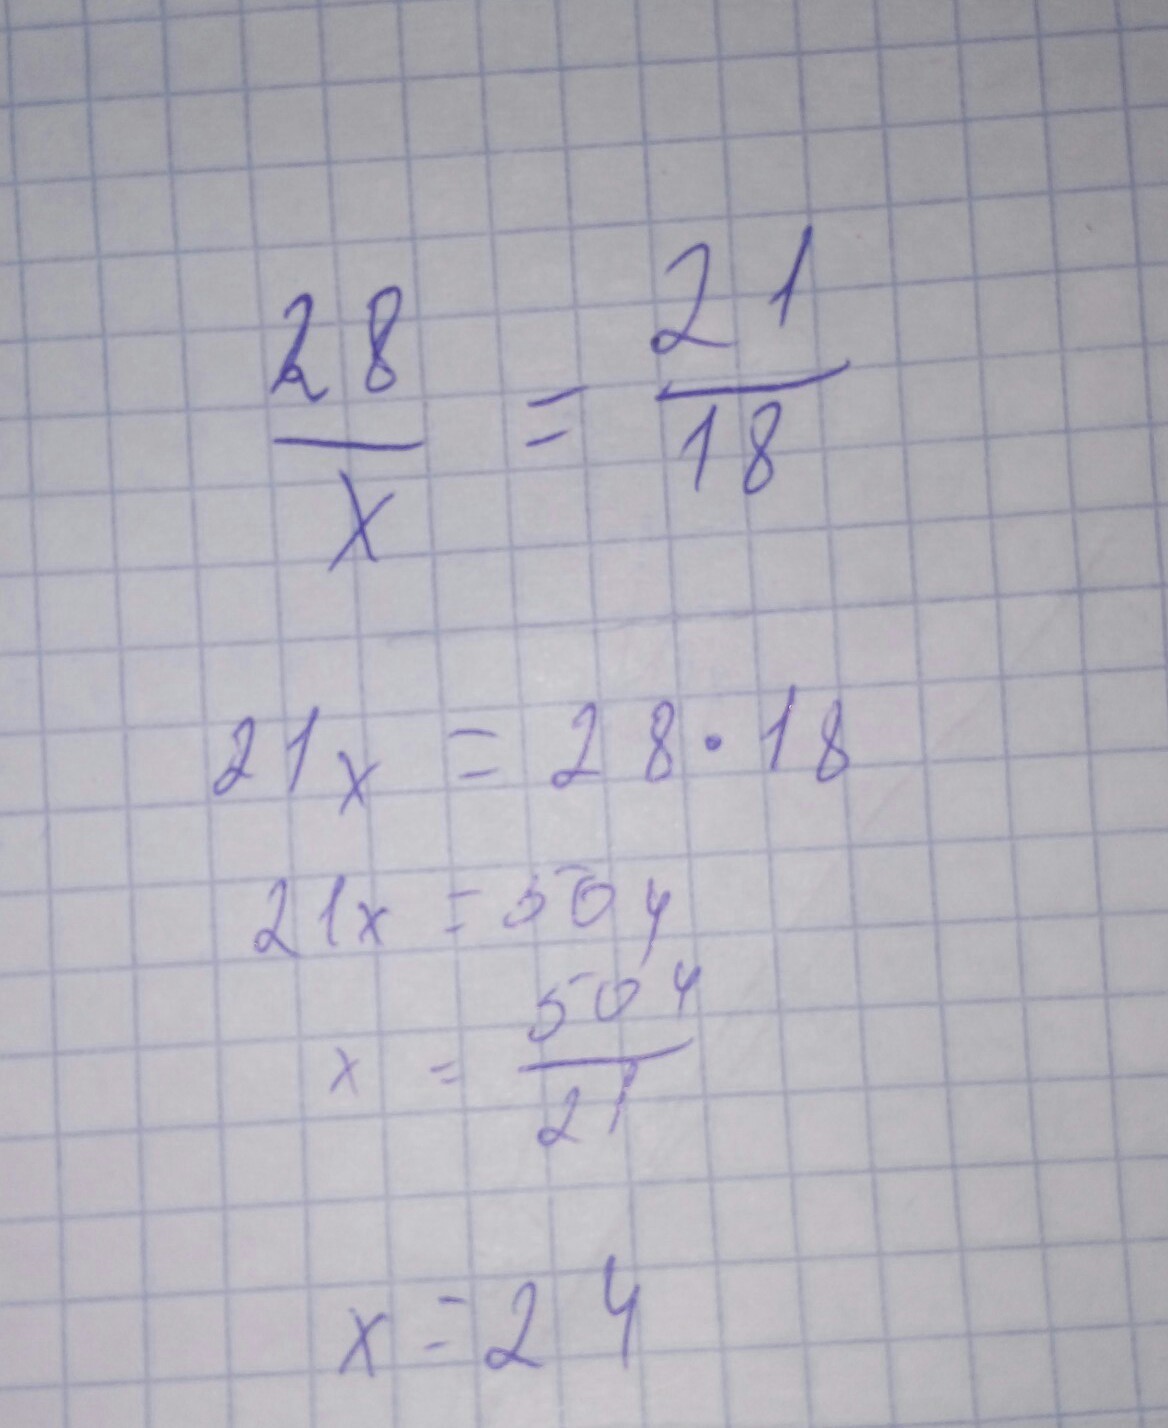 28/x = 21/18
21x = 28·18
21x = 504
x = 504/21
x = 24